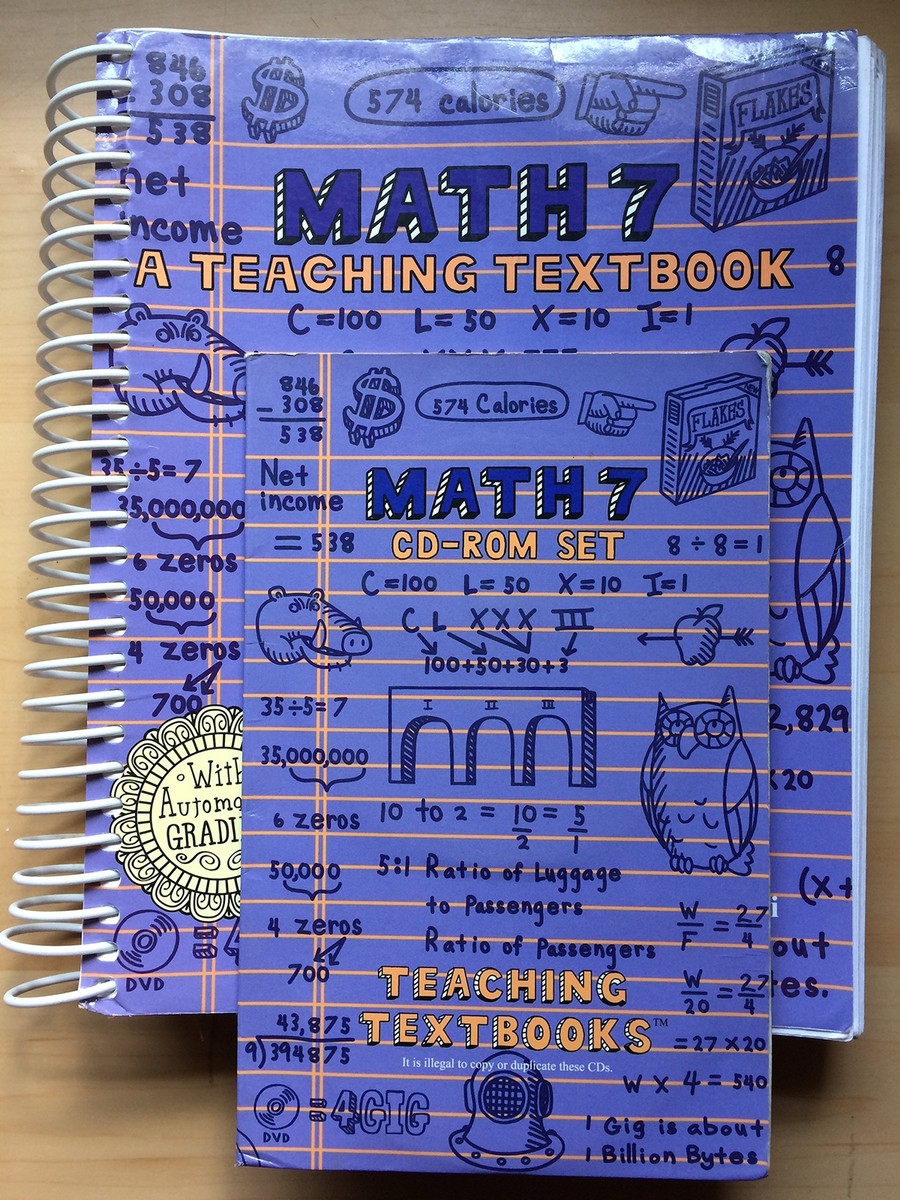 846
308
538
574 calories
FLAKES
net
income
MATH 7
A TEACHING TEXTBOOK
8
C=100 L=50 X=10 I=1
35÷5=7
35,000,000
6 zeros
50,000
4 zeros
700
With
Automa
GRADI
DVD
=4
2,829
x20
(x+
i
out
es.
846
- 308
538
574 Calories
NEW
FLAKES
Net
income
= 538
MATH 7
CD-ROM SET
8 ÷ 8 = 1
C=100 L=50 X=10 I=1
C L XXX III
100+50+30+3
I II III
35÷5=7
35,000,000
6 zeros
50,000
4 zeros
700
10 to 2 = 10/2 = 5/1
5:1 Ratio of Luggage
to Passengers
Ratio of Passengers
W/F = 27/4
W/20 = 27/4
= 27 x 20
W x 4 = 540
TEACHING
TEXTBOOKS™
It is illegal to copy or duplicate these CDs.
43,875
9)394875
DVD
=4GIG
1 Gig is about
1 Billion Bytes